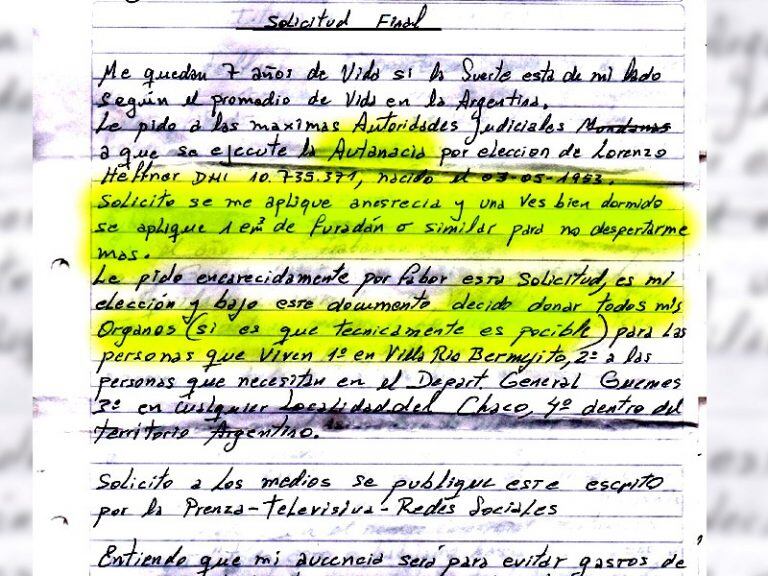 Solicitud Final
Me quedan 7 años de Vida si la Suerte esta de mi lado
según el promedio de Vida en la Argentina.
Le pido a las maximas Autoridades Judiciales
a que se ejecute la Autanacia por eleccion de Lorenzo
Heffner DNI 10.735.371, nacido el 03-05-1953.
Solicito se me aplique anestecia y una ves bien dormido
se aplique 1 cm³ de furadán o similar para no despertarme
mas.
Le pido encarecidamente por fabor esta Solicitud, es mi
elección y bajo este documento decido donar todos mis
Organos (si es que tecnicamente es pocible) para las
personas que Viven 1º en Villa Rio Bermejito, 2º a las
personas que necesitan en el Depart. General Guemes
3º en cualquier Localidad del Chaco, 4º dentro del
territorio Argentino.
Solicito a los medios se publique este escrito
por la Prenza-Televisiva-Redes Sociales
Entiendo que mi aucencia será para evitar gastos de